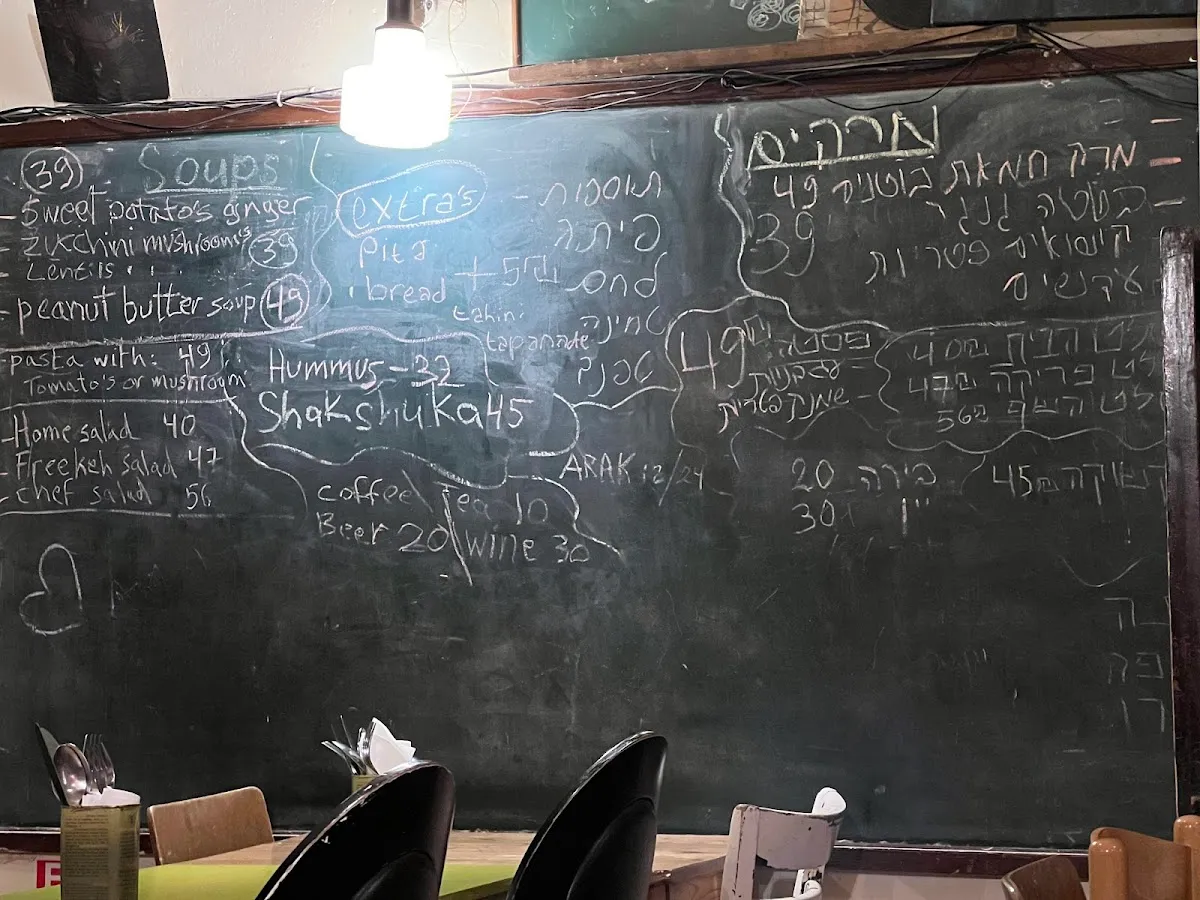 39 Soups
- Sweet potato's ginger
- Zukchini mushroom's 39
- Lentils
- peanut butter soup 49
pasta with: 49
Tomato's or mushroom
- Home salad 40
- Freekeh salad 47
- chef salad 56
extra's
pita
bread
+5₪
tahini
tapanade
Hummus - 32
Shakshuka 45
ARAK 12/24
coffee Tea 10
Beer 20 wine 30
תוספות -
פיתה
לחם
טחינה
מרקים
מרק חמאת בוטנים 49
בטטה ג'ינג'ר
39
קישואים פטריות
עדשים
49 ₪ פסטה
- עגבניות
- שמנת פטריות
סלט הבית ₪40
סלט פריקה ₪47
סלט השף ₪56
בירה 20
יין 30
שקשוקה ₪45